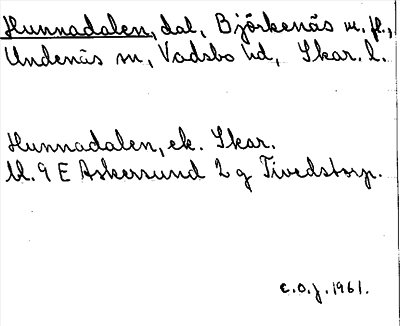 Hunnadalen, dal, Björkenäs m. fl.,
Undenäs sn, Vadsbo hd, Skar. l.
Hunnadalen, ek. Skar.
bl. 9 E Askersund 2 g Tivedstorp.
c.o.j. 1961.